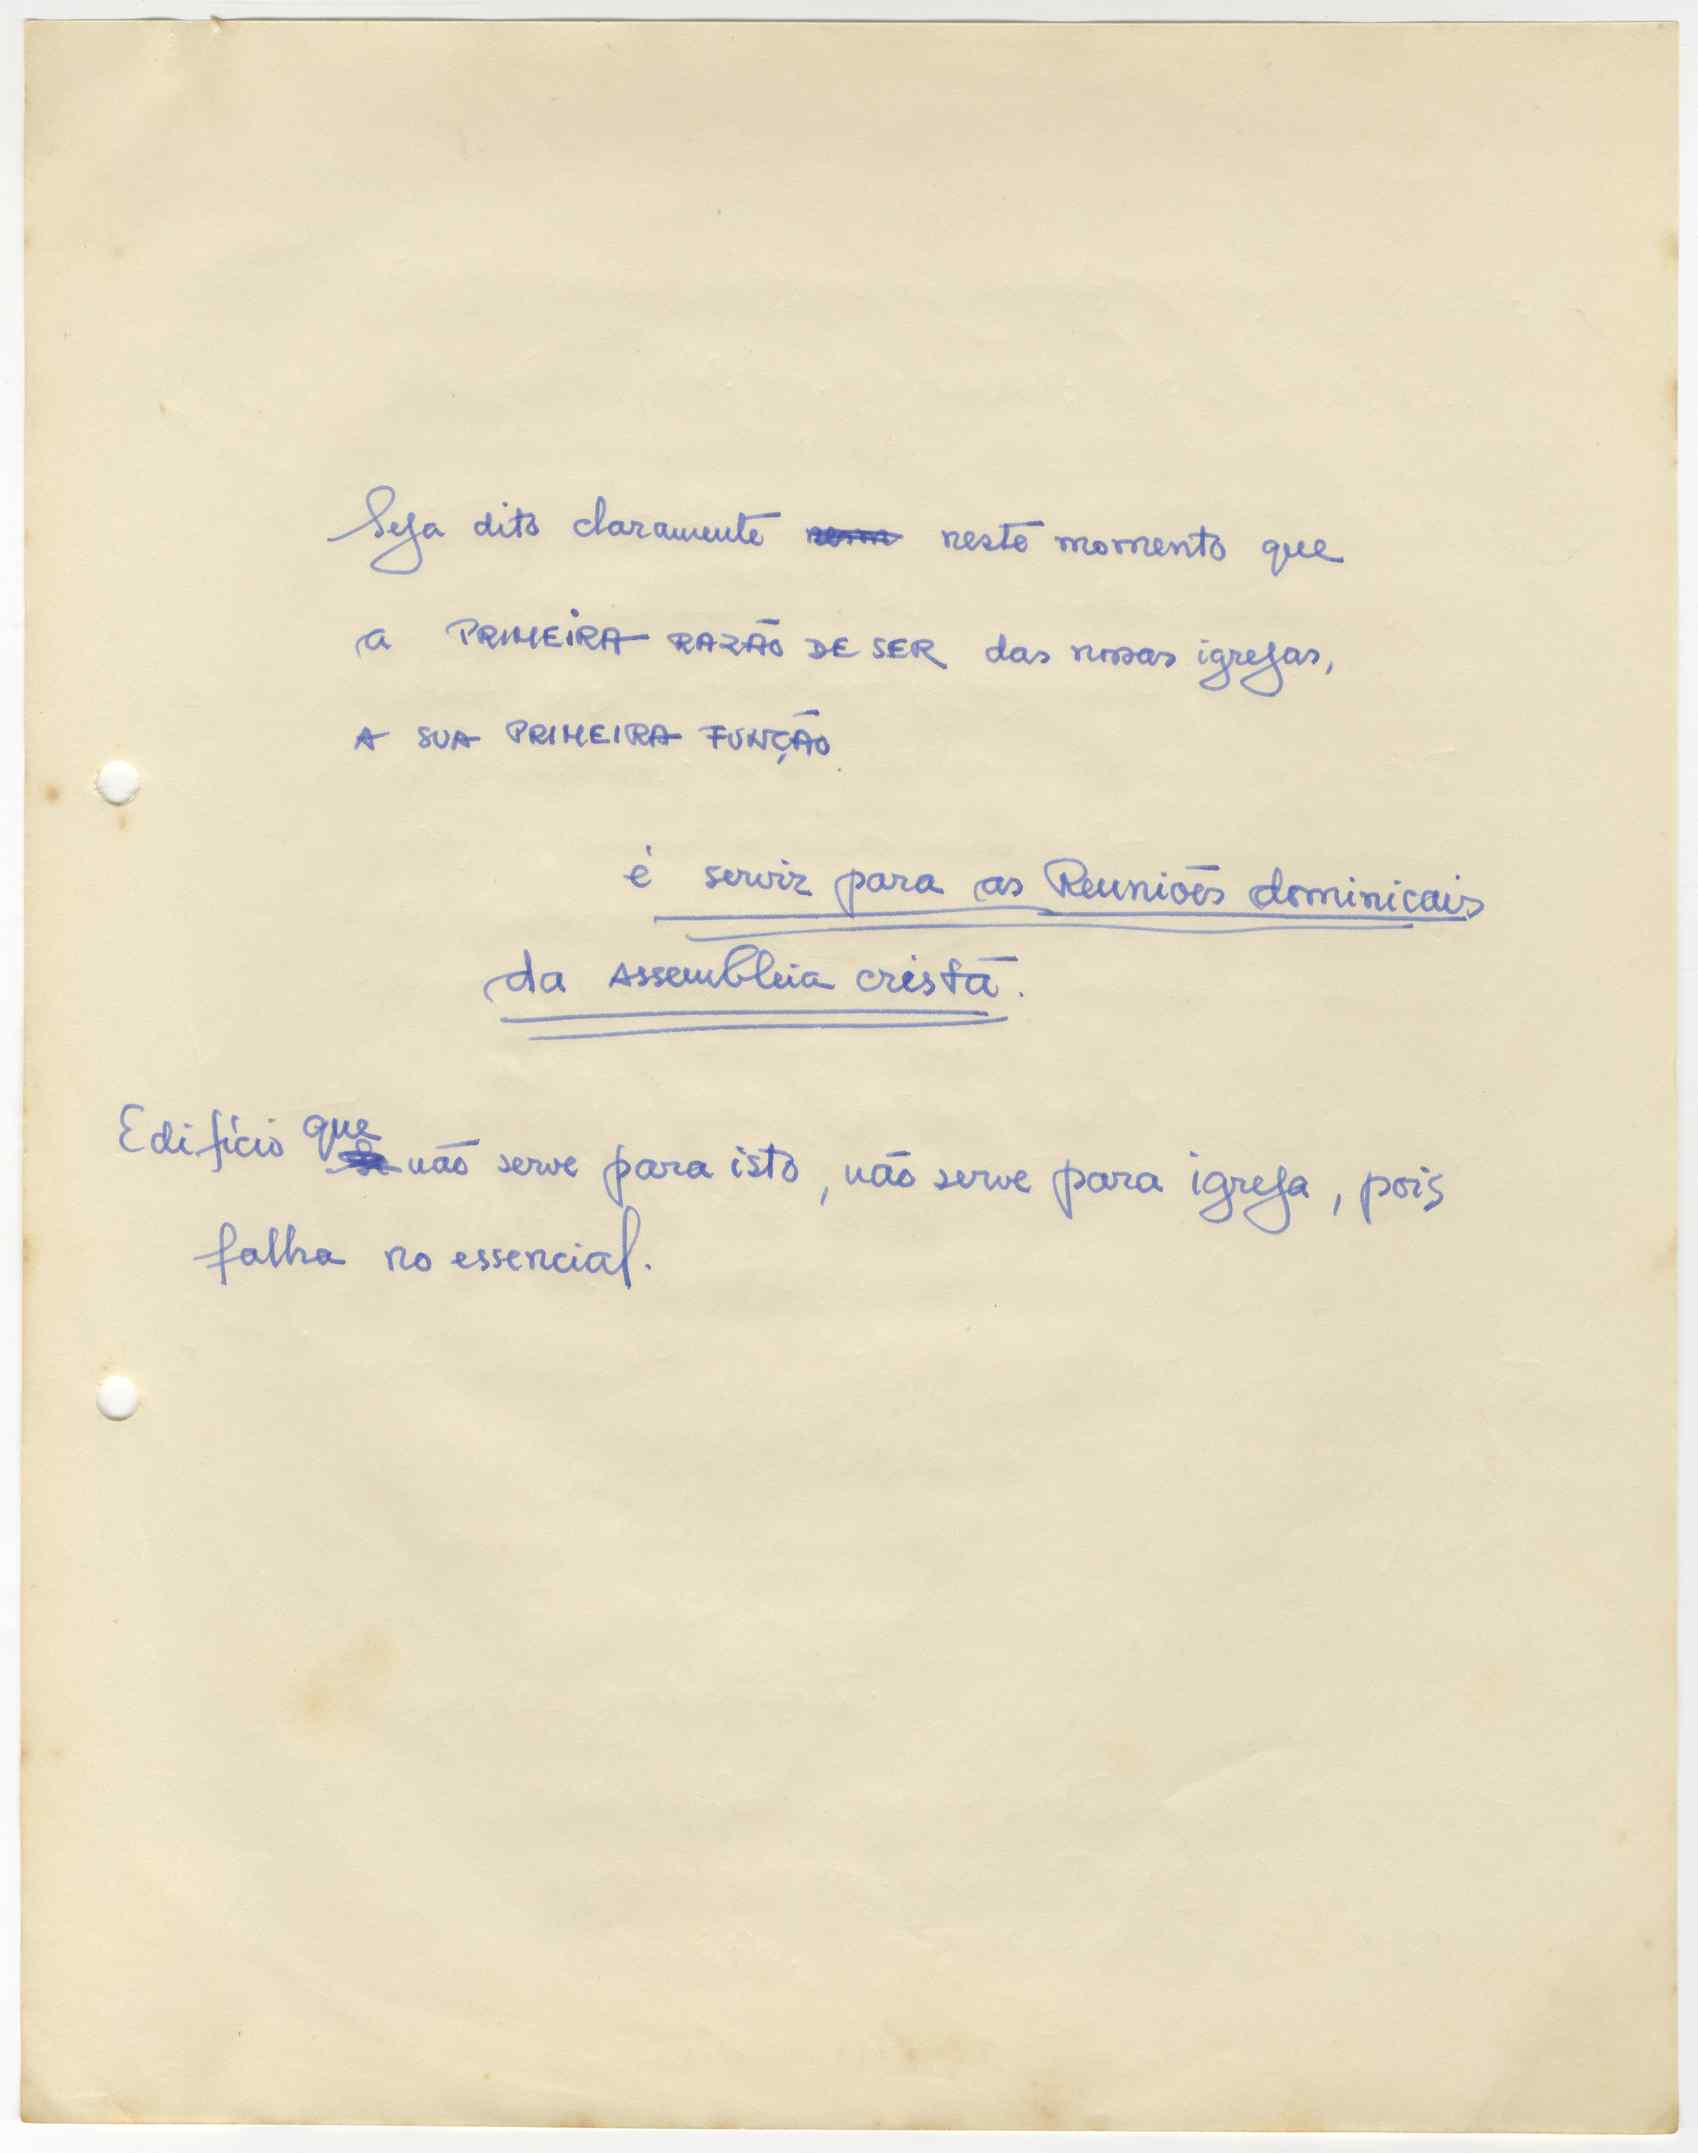 Seja dito claramente neste momento que
a PRIMEIRA RAZÃO DE SER das nossas igrejas,
A SUA PRIMEIRA FUNÇÃO
é servir para as Reuniões dominicais
da Assembleia cristã.
Edifício que não serve para isto, não serve para igreja, pois
falha no essencial.